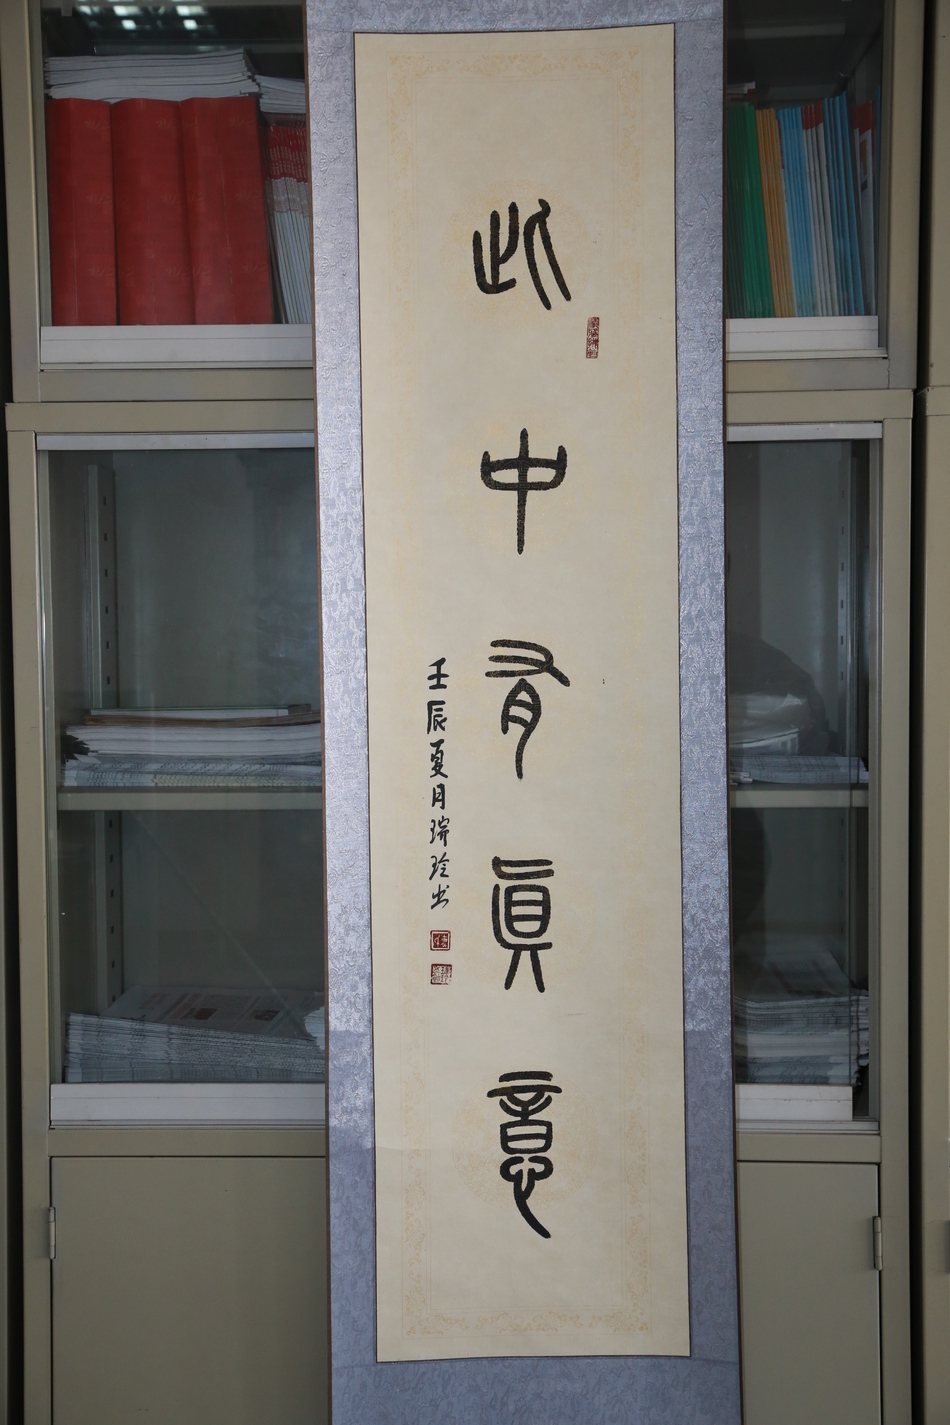 此中有真意
壬辰夏月瑞玲书